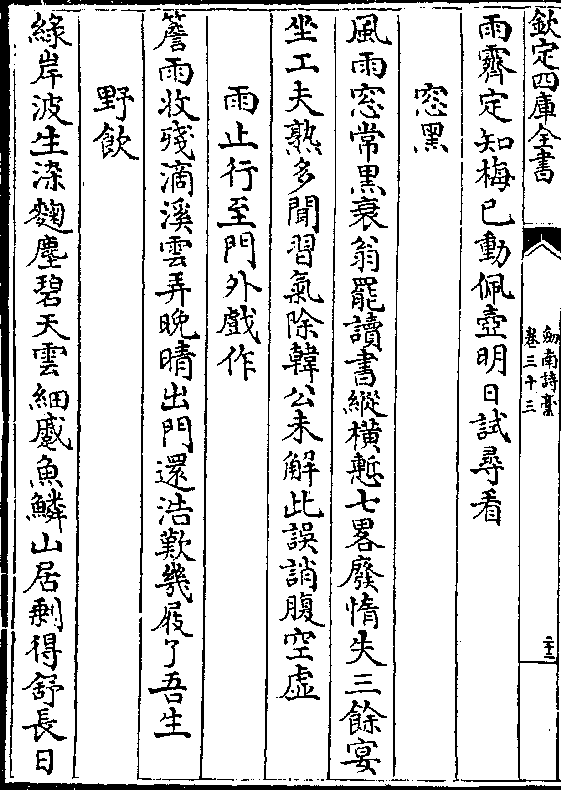 欽定四庫全書
劒南詩藁
卷三十三
二十三
雨霽定知梅已動佩壺明日試尋看
窓黑
風雨窓常黒衰翁罷讀書縱横慙七畧廢惰失三餘宴
坐工夫熟多聞習氣除韓公未解此誤誚腹空虚
雨止行至門外戲作
簷雨收殘滴溪雲弄晚晴出門還浩歎幾屐了吾生
野飲
緑岸波生染麴塵碧天雲細蹙魚鱗山居剰得舒長日